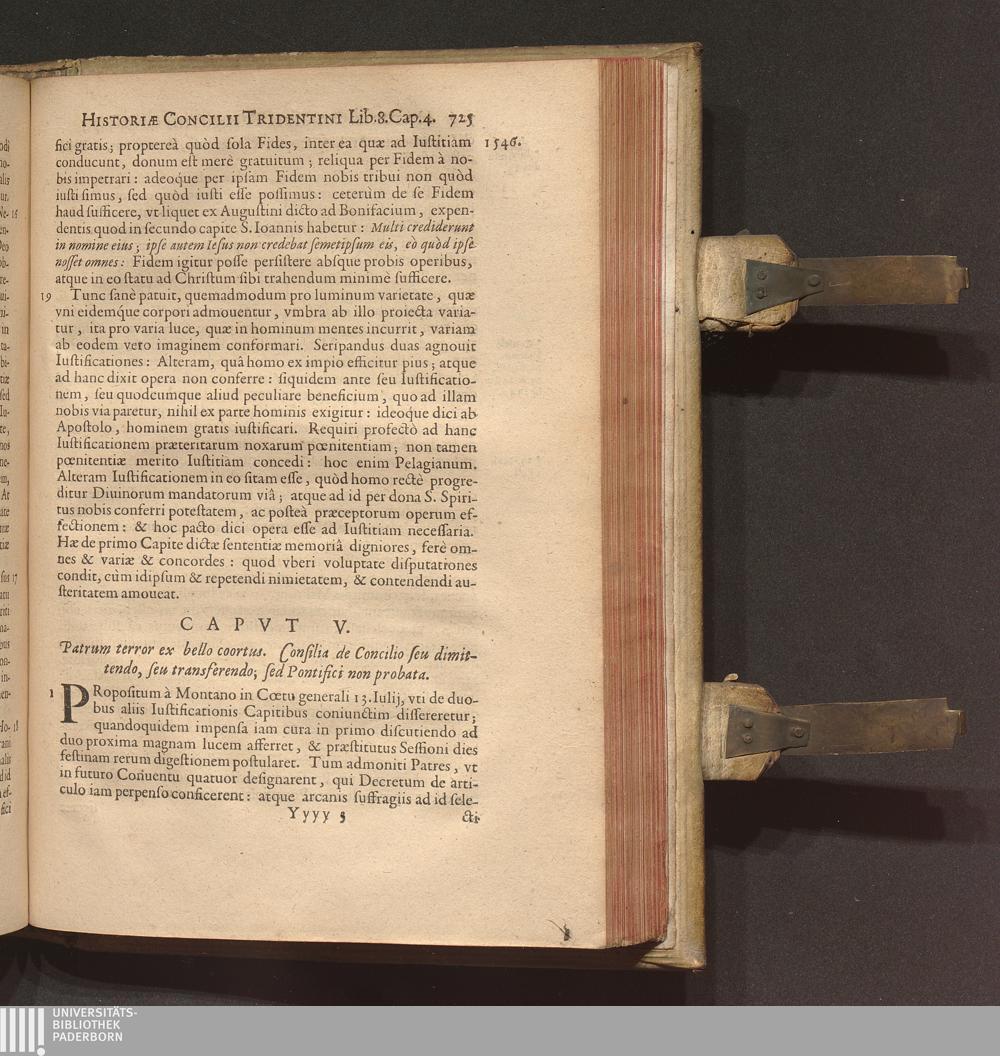 HISTORIÆ CONCILII TRIDENTINI Lib.8.Cap.4. 725
fici gratis; proptereà quòd sola Fides, inter ea quæ ad Iustitiam 1546.
conducunt, donum est merè gratuitum; reliqua per Fidem à no-
bis impetrari: adeoque per ipsam Fidem nobis tribui non quòd
iusti simus, sed quòd iusti esse possimus: ceterùm de se Fidem
haud sufficere, vt liquet ex Augustini dicto ad Bonifacium, expen-
dentis quod in secundo capite S. Ioannis habetur: Multi crediderunt
in nomine eius; ipse autem Iesus non credebat semetipsum eis, eò quòd ipse
nosset omnes: Fidem igitur posse persistere absque probis operibus,
atque in eo statu ad Christum sibi trahendum minimè sufficere.
19 Tunc sanè patuit, quemadmodum pro luminum varietate, quæ
vni eidemque corpori admouentur, vmbra ab illo proiecta varia-
tur, ita pro varia luce, quæ in hominum mentes incurrit, variam
ab eodem vero imaginem conformari. Seripandus duas agnouit
Iustificationes: Alteram, quâ homo ex impio efficitur pius; atque
ad hanc dixit opera non conferre: siquidem ante seu Iustificatio-
nem, seu quodcumque aliud peculiare beneficium, quo ad illam
nobis via paretur, nihil ex parte hominis exigitur: ideoque dici ab
Apostolo, hominem gratis iustificari. Requiri profectò ad hanc
Iustificationem præteritarum noxarum pœnitentiam; non tamen
pœnitentiæ merito Iustitiam concedi: hoc enim Pelagianum.
Alteram Iustificationem in eo sitam esse, quòd homo rectè progre-
ditur Diuinorum mandatorum viâ; atque ad id per dona S. Spiri-
tus nobis conferri potestatem, ac posteà præceptorum operum ef-
fectionem: & hoc pacto dici opera esse ad Iustitiam necessaria.
Hæ de primo Capite dictæ sententiæ memoriâ digniores, ferè om-
nes & variæ & concordes: quod vberi voluptate disputationes
condit, cùm idipsum & repetendi nimietatem, & contendendi au-
steritatem amoueat.
CAPVT V.
Patrum terror ex bello coortus. Consilia de Concilio seu dimit-
tendo, seu transferendo; sed Pontifici non probata.
1 PRopositum à Montano in Cœtu generali 13. Iulij, vti de duo-
bus aliis Iustificationis Capitibus coniunctim dissereretur;
quandoquidem impensa iam cura in primo discutiendo ad
duo proxima magnam lucem afferret, & præstitutus Sessioni dies
festinam rerum digestionem postularet. Tum admoniti Patres, vt
in futuro Conuentu quatuor designarent, qui Decretum de arti-
culo iam perpenso conficerent: atque arcanis suffragiis ad id sele-
Yyyy 3 cti
UNIVERSITÄTS-
BIBLIOTHEK
PADERBORN